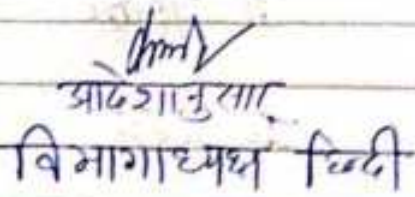 आदेशानुसार
विभागाध्यक्ष हिन्दी